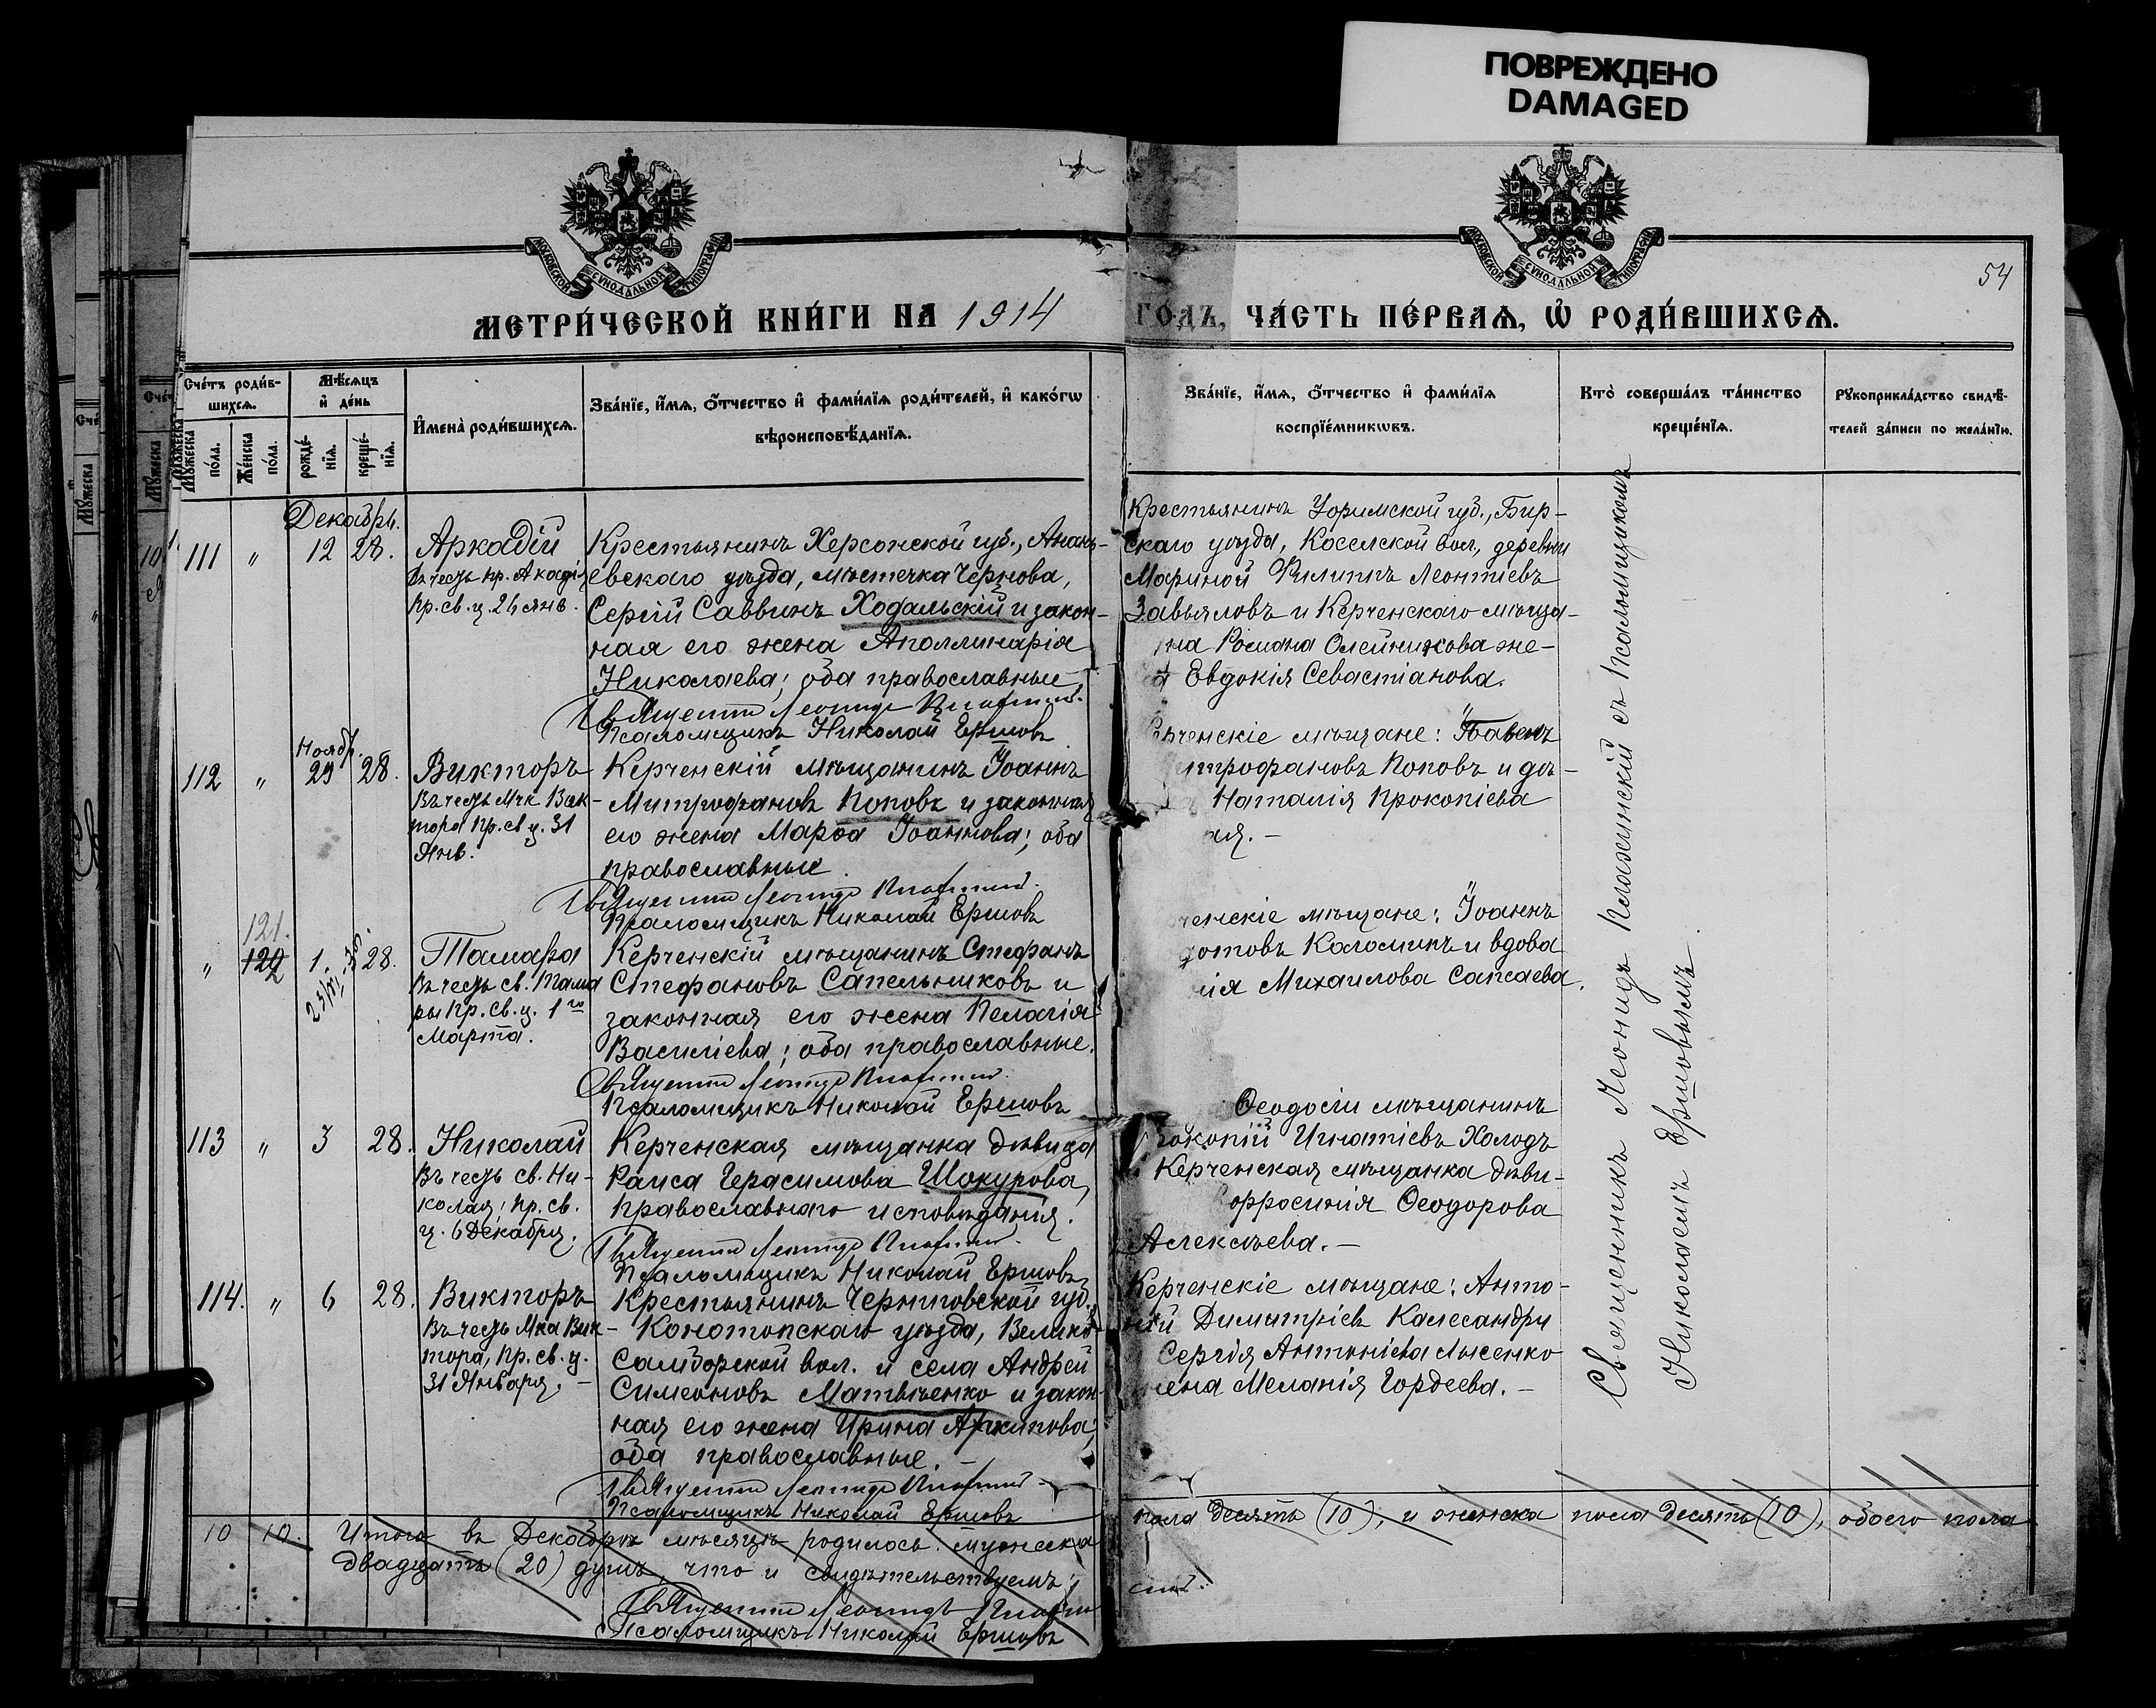 ПОВРЕЖДЕНО
DAMAGED
МОСКОВСКОЙ СѴНОДАЛЬНОЙ ТИПОГРАФІИ
МОСКОВСКОЙ СѴНОДАЛЬНОЙ ТИПОГРАФІИ
54
МЕТРИ́ЧЕСКОЙ КНИ́ГИ НА 1914 ГО́ДЪ, ЧА́СТЬ ПЕ́РВАѦ, Ѡ҆ РОДИ́ВШИХСѦ.
Сче́тъ роди́в-
шихсѧ.
Мꙋ́жеска
по́ла.
Же́нска
по́ла.
Мѣ́сѧцъ
и҆ де́нь
рожде́-
нїѧ.
креще́-
нїѧ.
И҆мена̀ роди́вшихсѧ.
Зва́нїе, и҆́мѧ, ѻ҆́тчество и҆ фами́лїѧ роди́телей, и҆ како́гѡ
вѣроисповѣ́данїѧ.
Зва́нїе, и҆́мѧ, ѻ҆́тчество и҆ фами́лїѧ
воспрїе́мникѡвъ.
Кто̀ соверша́лъ та́инство
креще́нїѧ.
Рꙋкоприкла́дство свидѣ́-
телей за́писи по жела́нїю.
Декабрь.
111 " 12 28.
Аркадій
Въ честь пр. Акадія
пр. св. ц. 26 янв.
Крестьянинъ Херсонской губ., Анань-
евскаго уѣзда, мѣстечка Чернова,
Сергій Саввинъ Ходальскій и закон-
ная его жена Аполлинарія
Николаева; оба православные
Священникъ Леонидъ
Псаломщикъ Николай Ершовъ
Крестьянинъ Уфимской губ., Бир-
скаго уѣзда, Косельской вол., деревни
Мариной Филиппъ Леонтіевъ
Завьяловъ и Керченскаго мѣща-
на Романа Олейникова же-
на Евдокія Севастіанова.
112 " Ноябр. 29 28.
Викторъ
Въ честь Мчк Вик-
тора пр. св ц. 31
Янв.
Керченскій мѣщанинъ Іоаннъ
Митрофановъ Поповъ и законная
его жена Марѳа Іоаннова; оба
православные.
Священникъ Леонидъ
Псаломщикъ Николай Ершовъ
Керченскіе мѣщане: Павелъ
итрофановъ Поповъ и дѣ-
Наталія Прокопіева
ая. —
" 121.
122 1. 28.
Тамара
Въ честь св. Тама
ры пр. св. ц. 1го
Марта.
Керченскій мѣщанинъ Стефанъ
Стефановъ Сапельниковъ и
законная его жена Пелагія
Василіева; оба православные.
Священникъ Леонидъ
Псаломщикъ Николай Ершовъ
ченскіе мѣщане: Іоаннъ
дотовъ Каломинъ и вдова
ія Михаилова Сапсаева.
113 " 3 28.
Николай
Въ честь св. Ни-
колая; пр. св.
ц. 6 Декабря.
Керченская мѣщанка дѣвица
Раиса Герасимова Шокурова,
православнаго исповѣданія.
Священникъ Леонидъ
Псаломщикъ Николай Ершовъ
Ѳеодосіи мѣщанинъ
рокопій Игнатіевъ Холодъ
Керченская мѣщанка дѣви-
фросинія Ѳеодорова
Алексѣева. —
114. " 6 28.
Викторъ
Въ честь Мка Вик-
тора, пр. св. ц.
31 Января. —
Крестьянинъ Черниговской губ.
Конотопскаго уѣзда, Велико-
Самборской вол. и села Андрей
Симеоновъ Матвѣенко и закон-
ная его жена Ирина Архипова;
оба православные. —
Священникъ Леонидъ
Псаломщикъ Николай Ершовъ
Керченскіе мѣщане: Анто-
ній Димитріевъ Калесандри
Сергія Антоніева Лысенко
жена Меланія Гордеева. —
Священникъ Леонидъ съ псаломщикомъ
Николаемъ Ершовымъ.
10 10. Итого въ Декабрѣ мѣсяцѣ родилось: мужеска пола десять (10), и женска пола десять (10), обоего пола
двадцать (20) душъ, что и свидѣтельствуемъ:
Священникъ Леонидъ
Псаломщикъ Николай Ершовъ